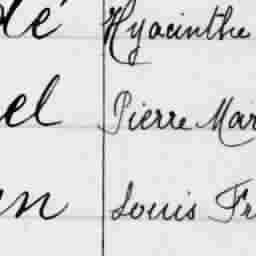 lé Hyacinthe
el Pierre Mar
n Louis Fr